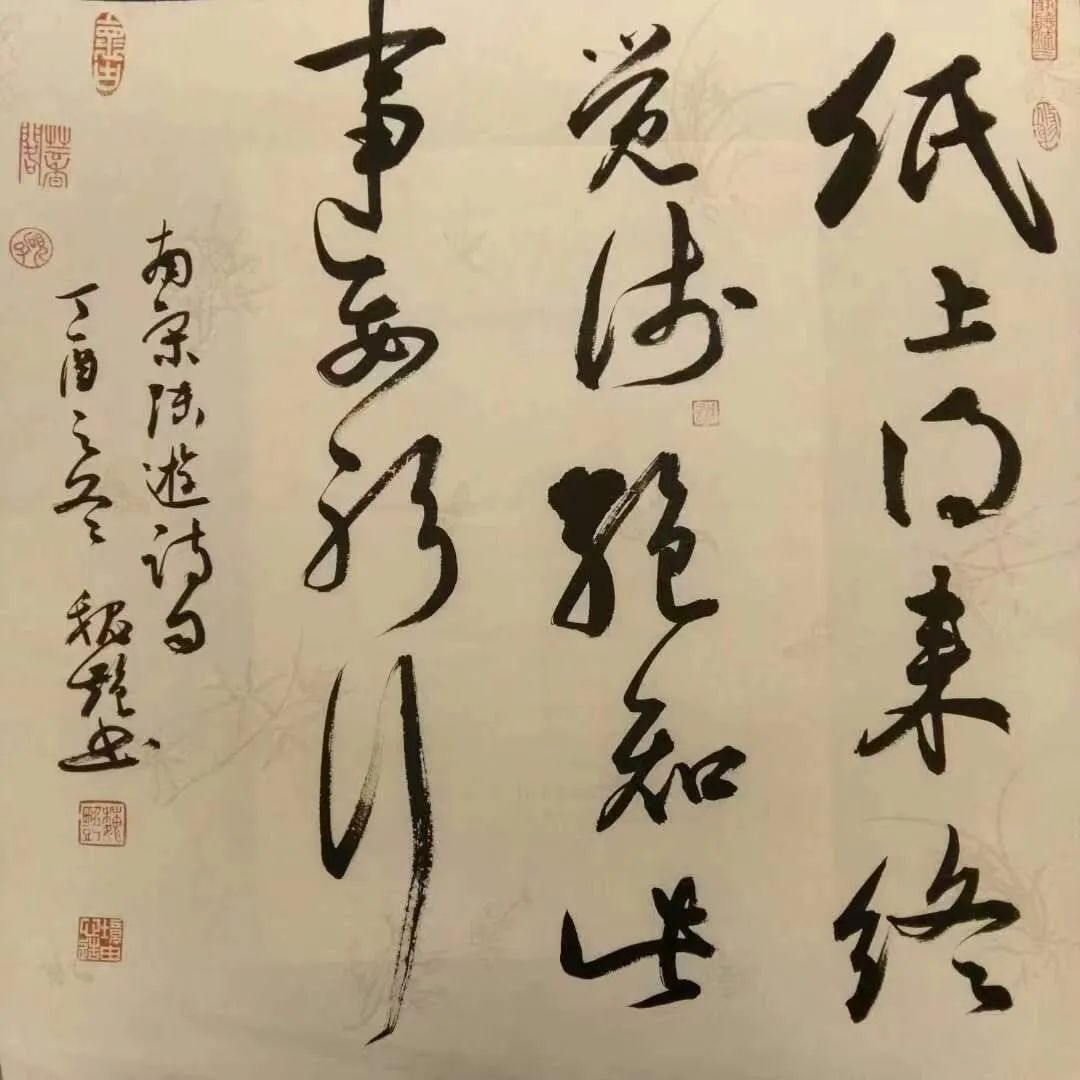 纸上得来终
觉浅绝知此
事要躬行
南宋陆遊诗句
丁酉之冬 魏书